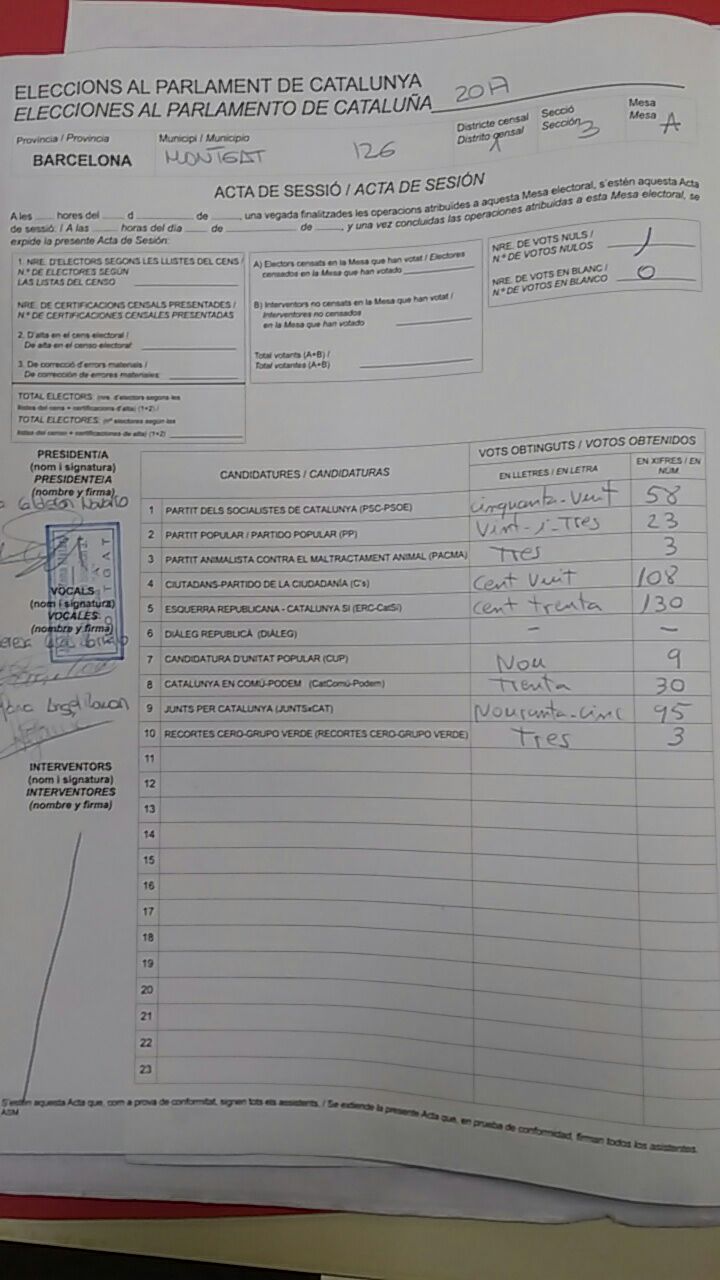 ELECCIONS AL PARLAMENT DE CATALUNYA
ELECCIONES AL PARLAMENTO DE CATALUÑA 2017
Provincia / Provincia
BARCELONA
Municipi / Municipio
MONTGAT 126
Districte censal
Distrito censal 1
Secció
Sección 3
Mesa
Mesa A
ACTA DE SESSIÓ / ACTA DE SESIÓN
A les ____ hores del ____ d ____ de ____, una vegada finalitzades les operacions atribuïdes a aquesta Mesa electoral, s'estén aquesta Acta
de sessió: / A las ____ horas del día ____ de ____ de ____, y una vez concluidas las operaciones atribuidas a esta Mesa electoral, se
expide la presente Acta de Sesión:
1. NRE. D'ELECTORS SEGONS LES LLISTES DEL CENS /
N.º DE ELECTORES SEGÚN
LAS LISTAS DEL CENSO
NRE. DE CERTIFICACIONS CENSALS PRESENTADES /
N.º DE CERTIFICACIONES CENSALES PRESENTADAS
2. D'alta en el cens electoral /
De alta en el censo electoral:
3. De correcció d'errors materials /
De corrección de errores materiales:
TOTAL ELECTORS: (nre. d'electors segons les
llistes del cens + certificacions d'alta) (1+2) /
TOTAL ELECTORES: (nº electores según las
listas del censo + certificaciones de alta) (1+2)
A) Electors censats en la Mesa que han votat / Electores
censados en la Mesa que han votado
B) Interventors no censats en la Mesa que han votat /
Interventores no censados
en la Mesa que han votado
Total votants (A+B) /
Total votantes (A+B)
NRE. DE VOTS NULS /
N.º DE VOTOS NULOS 1
NRE. DE VOTS EN BLANC /
N.º DE VOTOS EN BLANCO 0
PRESIDENT/A
(nom i signatura)
PRESIDENTE/A
(nombre y firma)
VOCALS
(nom i signatura)
VOCALES
(nombre y firma)
INTERVENTORS
(nom i signatura)
INTERVENTORES
(nombre y firma)
CANDIDATURES / CANDIDATURAS
VOTS OBTINGUTS / VOTOS OBTENIDOS
EN LLETRES / EN LETRA
EN XIFRES / EN NÚM.
1 PARTIT DELS SOCIALISTES DE CATALUNYA (PSC-PSOE) cinquanta-vuit 58
2 PARTIT POPULAR / PARTIDO POPULAR (PP) Vint-i-Tres 23
3 PARTIT ANIMALISTA CONTRA EL MALTRACTAMENT ANIMAL (PACMA) Tres 3
4 CIUTADANS-PARTIDO DE LA CIUDADANÍA (C's) cent vuit 108
5 ESQUERRA REPUBLICANA - CATALUNYA SÍ (ERC-CatSí) cent trenta 130
6 DIÀLEG REPUBLICÀ (DIÀLEG) – –
7 CANDIDATURA D'UNITAT POPULAR (CUP) Nou 9
8 CATALUNYA EN COMÚ-PODEM (CatComú-Podem) Trenta 30
9 JUNTS PER CATALUNYA (JUNTSxCAT) Nouranta-cinc 95
10 RECORTES CERO-GRUPO VERDE (RECORTES CERO-GRUPO VERDE) Tres 3
11
12
13
14
15
16
17
18
19
20
21
22
23
S'estén aquesta Acta que, com a prova de conformitat, signen tots els assistents. / Se extiende la presente Acta que, en prueba de conformidad, firman todos los asistentes.
ASM